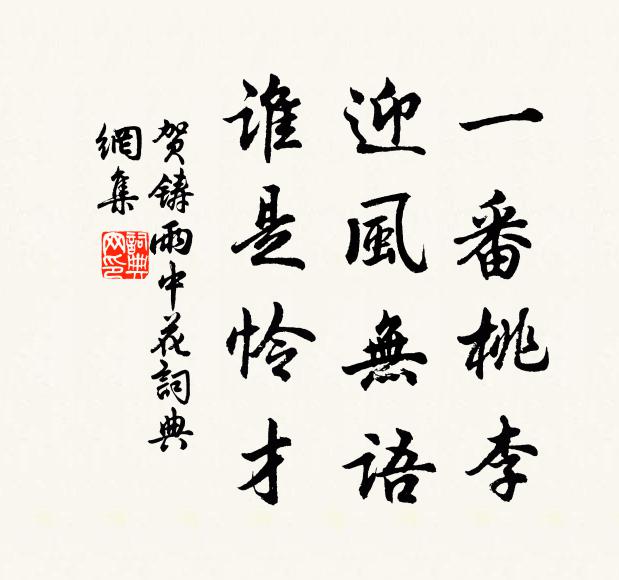 一番桃李
迎風無語
谁是怜才
贺鑄雨中花詞典
網集
詞典网印